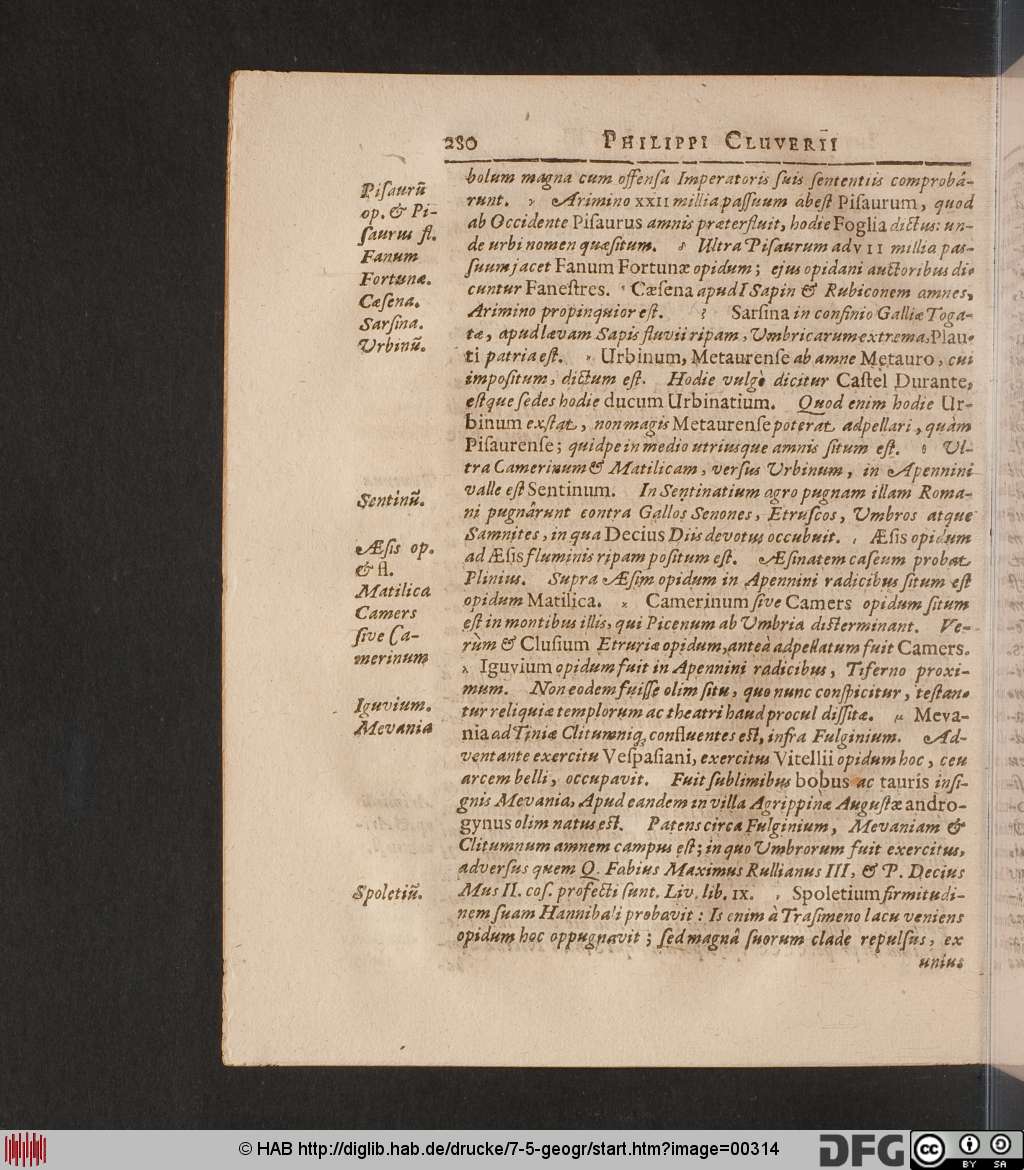 280 PHILIPPI CLUVERII
bolum magna cum offensa Imperatoris suis sententiis comprobâ-
runt. Arimino XXII millia passuum abest Pisaurum, quod
ab Occidente Pisaurus amnis præterfluit, hodie Foglia dictus: un-
de urbi nomen quæsitum. Ultra Pisaurum ad VII millia pas-
suum jacet Fanum Fortunæ opidum; ejus opidani auctoribus di-
cuntur Fanestres. Cæsena apud I Sapin & Rubiconem amnes,
Arimino propinquior est. Sarsina in confinio Galliæ Toga-
tæ, apud lævam Sapis fluvii ripam, Umbricarum extrema, Plau-
ti patria est. Urbinum, Metaurense ab amne Metauro, cui
impositum, dictum est. Hodie vulgò dicitur Castel Durante,
estque sedes hodie ducum Urbinatium. Quod enim hodie Ur-
binum exstat, non magis Metaurense poterat adpellari, quàm
Pisaurense; quidpe in medio utriusque amnis situm est. Ul-
tra Camerinum & Matilicam, versus Urbinum, in Apennini
valle est Sentinum. In Sentinatium agro pugnam illam Roma-
ni pugnârunt contra Gallos Senones, Etruscos, Umbros atque
Samnites, in qua Decius Diis devotus occubuit. Æsis opidum
ad Æsis fluminis ripam positum est. Æsinatem caseum probat
Plinius. Supra Æsim opidum in Apennini radicibus situm est
opidum Matilica. Camerinum sive Camers opidum situm
est in montibus illis, qui Picenum ab Umbria disterminant. Ve-
rùm & Clusium Etruriæ opidum, anteà adpellatum fuit Camers.
λ Iguvium opidum fuit in Apennini radicibus, Tiferno proxi-
mum. Non eodem fuisse olim situ, quo nunc conspicitur, testan-
tur reliquiæ templorum ac theatri haud procul dissitæ. μ Meva-
nia ad Tiniæ Clitumniq; confluentes est, infra Fulginium. Ad-
ventante exercitu Vespasiani, exercitus Vitellii opidum hoc, ceu
arcem belli, occupavit. Fuit sublimibus bobus ac tauris insi-
gnis Mevania, Apud eandem in villa Agrippinæ Augustæ andro-
gynus olim natus est. Patens circa Fulginium, Mevaniam &
Clitumnum amnem campus est; in quo Umbrorum fuit exercitus,
adversus quem Q. Fabius Maximus Rullianus III, & P. Decius
Mus II. cos. profecti sunt. Liv. lib. IX. Spoletium firmitudi-
nem suam Hannibali probavit: Is enim à Trasimeno lacu veniens
opidum hoc oppugnavit; sed magnâ suorum clade repulsus, ex
unius
Pisaurũ
op. & Pi-
saurus fl.
Fanum
Fortunæ.
Cæsena.
Sarsina.
Urbinũ.
Sentinũ.
Æsis op.
& fl.
Matilica
Camers
sive Ca-
merinum
Iguvium.
Mevania
Spoletiũ.
© HAB http://diglib.hab.de/drucke/7-5-geogr/start.htm?image=00314
DFG
cc BY SA